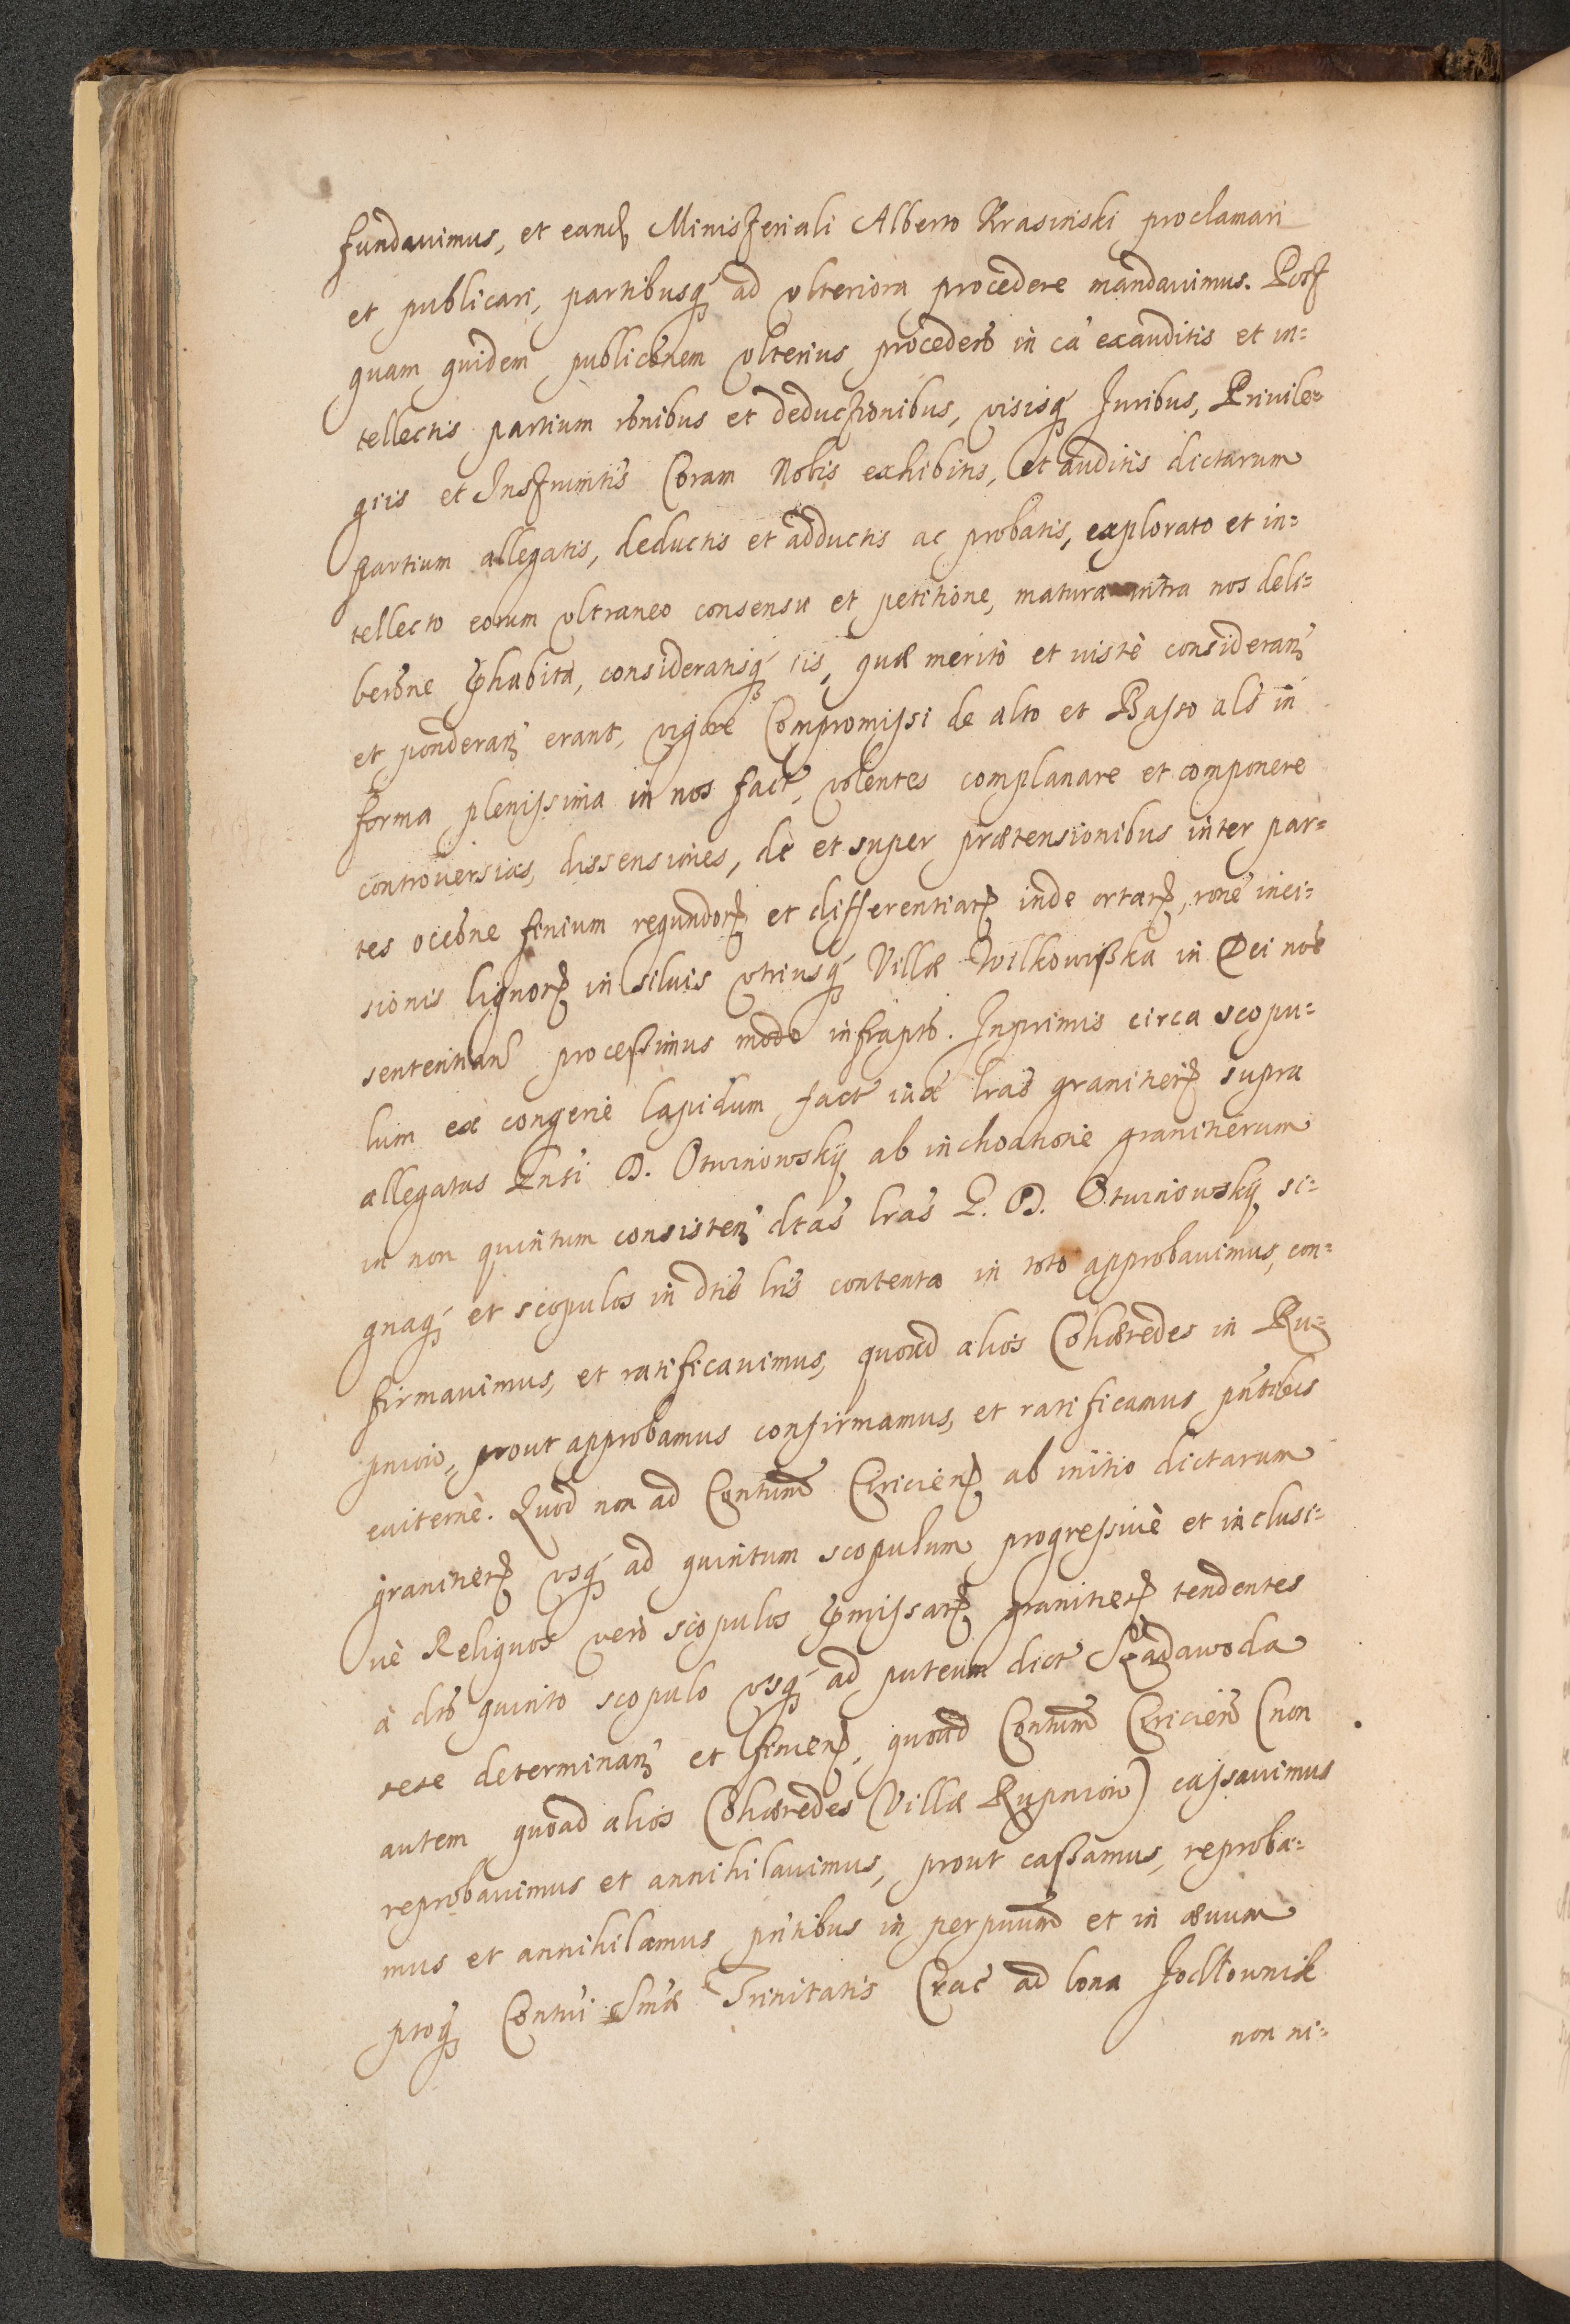 fundavimus, et eand Ministeriali Alberto Krasinski proclamari
et publicari, partibusq́ ad vlteriora procedere mandavimus. Post
quam quidem publicõnem vlterius procedendo in cã exauditis et in=
tellectis partium rõnibus et deductionibus, visisq́ Juribus, Privile=
giis et Instrumtis Coram Nobis exhibitis, et auditis dictarum
partium allegatis, deductis et adductis ac probatis, explorato et in=
tellecto eorum vltraneo consensu et petitione, matura intra nos deli=
berõne p̱habita, consideratisq́ iis, quæ meritò et iustè consideranꝫ
et ponderanꝫ erant, vigore Compromissi de alto et Basso als in
forma plenissima in nos fact, volentes complanare et componere
controversias, dissensiones, de et super prætensionibus inter par=
tes occõne finium regundorꝫ et differentiarꝫ inde ortarꝫ, rõne inci=
sionis lignorꝫ in silvis vtriusq́ Villæ Wilkowißka in Dei noẽ
sententiam processimus modo infrapto. Inprimis circa scopu=
lum ex congerie lapidum fact iuã lrãs granicierꝫ supra
allegatas Gnsi D. Oturniowskÿ ab inchoatione granicierum
in non quintum consistenꝫ dtas lras G. D. Oturniowskÿ si=
gnaq́ et scopulos in dtis lris contenta in toto approbavimus, con=
firmavimus, et ratificavimus, quoad alios Cohæredes in Ru=
pniow, prout approbamus confirmamus, et ratificamus pntibus
eviternè. Quod non ad Contum Ciriciens ab initio dictarum
granicierꝫ vsq́ ad quintum scopulum progressivè et inclusi=
vè Reliquos verò scopulos p̱missarꝫ granicierꝫ tendentes
à dto quinto scopulo vsq́ ad puteum dict Sładawoda
sese determinanꝫ et finienꝫ, quoad Contum Ciricien (non
autem quoad alios Cohæredes Villæ Rupniow) cassavimus
reprobavimus et annihilavimus, prout cassamus, reproba=
mus et annihilamus pntibus in perpuum et in ævum
proq́ Contui Smæ Trinitatis Crac ad bona Jodłownik
non ni=